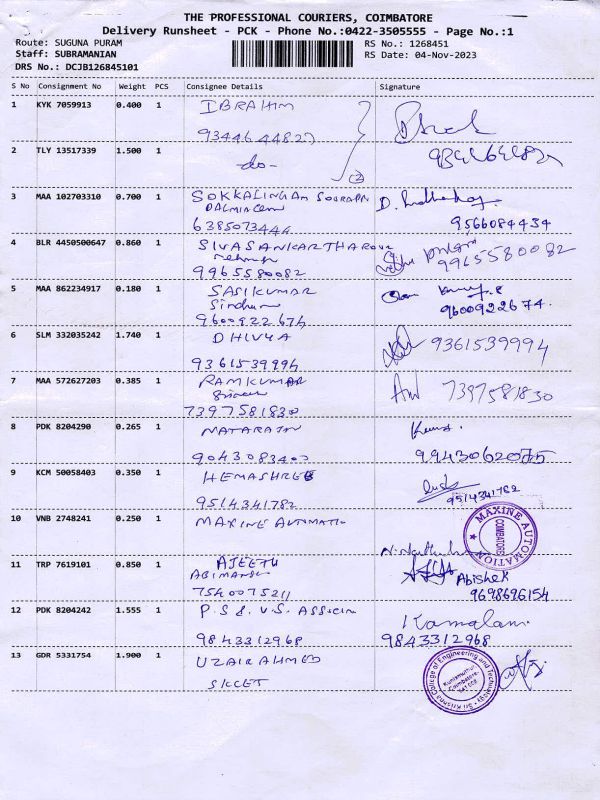 THE PROFESSIONAL COURIERS, COIMBATORE
Delivery Runsheet - PCK - Phone No.:0422-3505555 - Page No.:1
Route: SUGUNA PURAM
RS No.: 1268451
Staff: SUBRAMANIAN
RS Date: 04-Nov-2023
DRS No.: DCJB126845101
S No Consignment No Weight PCS Consignee Details Signature
1 KYK 7059913 0.400 1 IBRAHIM
9344644827
2 TLY 13517339 1.500 1 -do-
(2)
3 MAA 102703310 0.700 1 SOKKALINGAM
6385073444
9566084434
4 BLR 4450500647 0.860 1 SIVASANKARTHAROUR
9965580082
9965580082
5 MAA 862234917 0.180 1 SASIKUMAR
9600922674
9600922674.
6 SLM 332035242 1.740 1 DHIVYA
9361539994
9361539994
7 MAA 572627203 0.385 1 RAMKUMAR
7397581830
7397581830
8 PDK 8204290 0.265 1 NATARAJN
9043083403
9943062075
9 KCM 50058403 0.350 1 HEMASHREE
9514341782
9514341782
10 VNB 2748241 0.250 1 MAXINE AUTOMATIC
MAXINE AUTOMATION
COIMBATORE
11 TRP 7619101 0.850 1 AJEETH
7540075211
Abishek
9698696154
12 PDK 8204242 1.555 1 P.S & V.S. ASSOCIN
9843312968
Kamalam.
9843312968
13 GDR 5331754 1.900 1 UZAIR AHMED
SKCET
Sri Krishna College of Engineering and Technology
Kuniamuthur
Coimbatore-
641 008